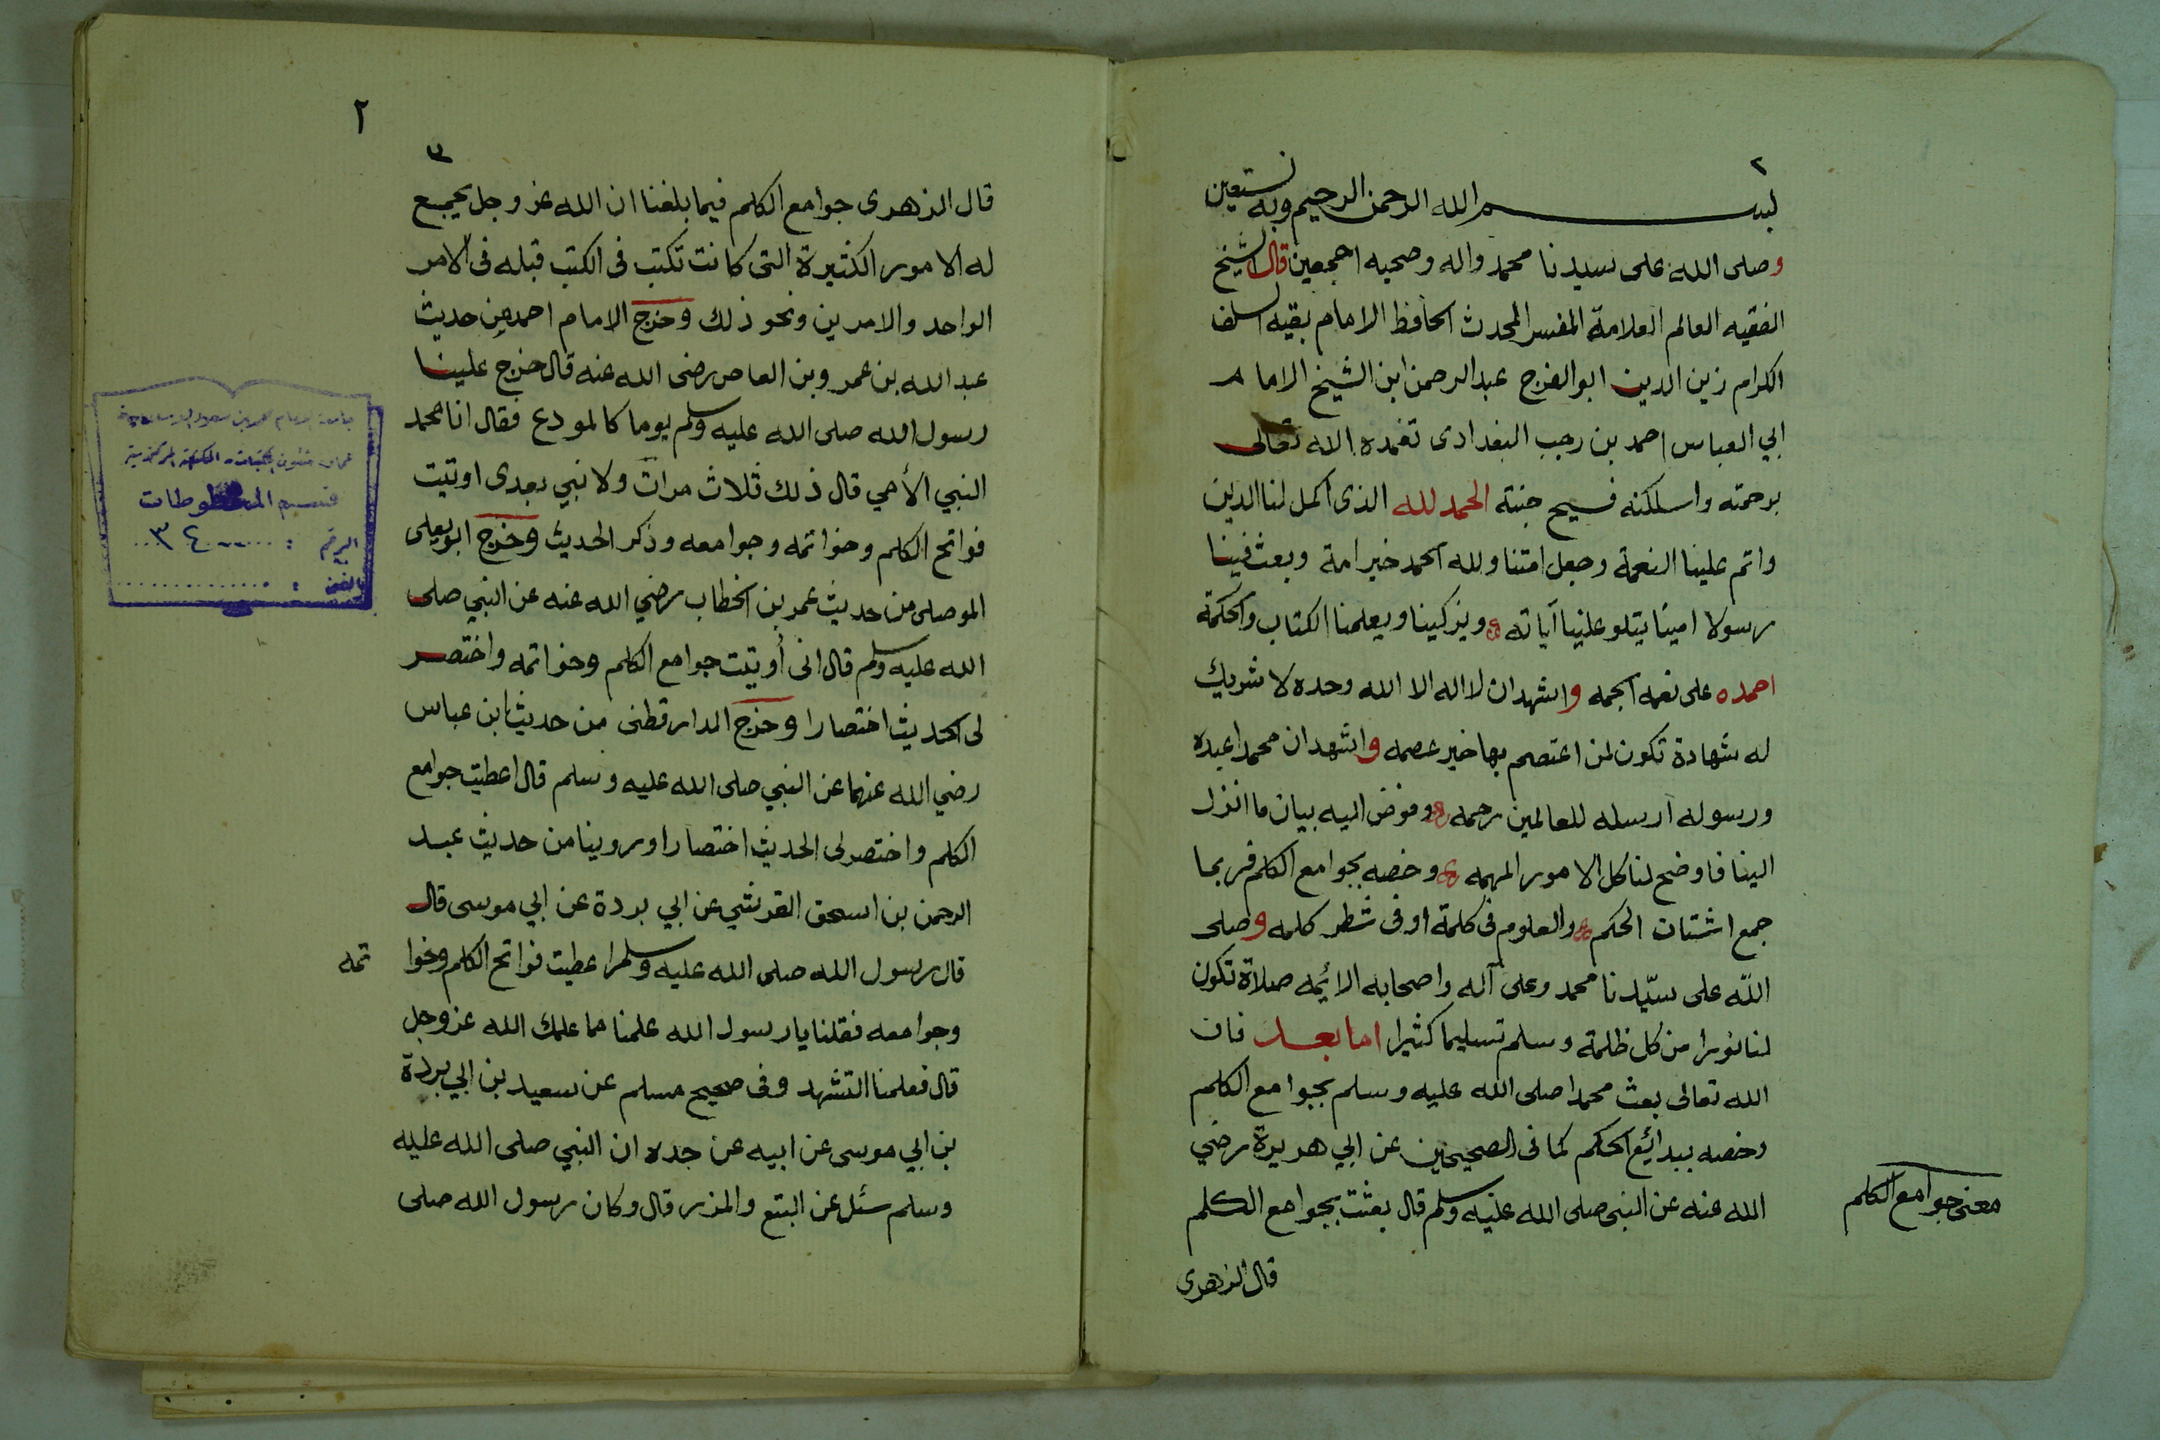 ٢
بسم الله الرحمن الرحيم وبه نستعين
وصلى الله على سيدنا محمد واله وصحبه اجمعين قال الشيخ
الفقيه العالم العلامة المفسر المحدث الحافظ الامام بقية السلف
الكرام زين الدين ابو الفرج عبد الرحمن ابن الشيخ الامام
ابي العباس احمد بن رجب البغدادى تغمده الله تعالى
برحمته واسكنه فسيح جنته الحمد لله الذى اكمل لنا الدين
واتم علينا النعمة وجعل امتنا ولله الحمد خير امة وبعث فينا
رسولا امينا يتلو علينا آياته ويزكينا ويعلمنا الكتاب والحكمة
احمده على نعمه الجمه واشهد ان لا اله الا الله وحده لا شريك
له شهادة تكون لمن اعتصم بها خير عصمه واشهد ان محمدا عبده
ورسوله ارسله للعالمين رحمه وفوض اليه بيان ما انزل
الينا فاوضح لنا كل الامور المهمه وخصه بجوامع الكلم فربما
جمع اشتات الحكم والعلوم فى كلمة او فى شطر كلمه وصلى
الله على سيّدنا محمد وعلى آله واصحابه الائمه صلاة تكون
لنا نورا من كل ظلمة وسلم تسليما كثيرا اما بعد فان
الله تعالى بعث محمدا صلى الله عليه وسلم بجوامع الكلم
وخصه ببدائع الحكم كما فى الصحيحين عن ابي هريرة رضي
الله عنه عن النبى صلى الله عليه وسلم قال بعثت بجوامع الكلم
معنى جوامع الكلم
قال الزهرى
٢
٣
قال الزهرى جوامع الكلم فيما بلغنا ان الله عز وجل يجمع
له الامور الكثيرة التى كانت تكتب فى الكتب قبله فى الامر
الواحد والامرين ونحو ذلك وخرج الامام احمد من حديث
عبد الله بن عمرو بن العاص رضى الله عنه قال خرج علينا
رسول الله صلى الله عليه وسلم يوما كالمودع فقال انا محمد
النبي الأمي قال ذلك ثلاث مرات ولا نبي بعدى اوتيت
فواتح الكلم وخواتمه وجوامعه وذكر الحديث وخرج ابو يعلى
الموصلى من حديث عمر بن الخطاب رضي الله عنه عن النبي صلى
الله عليه وسلم قال انى أوتيت جوامع الكلم وخواتمه واختصر
لى الحديث اختصارا وخرج الدارقطنى من حديث ابن عباس
رضي الله عنهما عن النبي صلى الله عليه وسلم قال اعطيت جوامع
الكلم واختصر لى الحديث اختصارا وروينا من حديث عبد
الرحمن بن اسحق القرشي عن ابي بردة عن ابي موسى قال
قال رسول الله صلى الله عليه وسلم اعطيت فواتح الكلم وخوا تمه
وجوامعه فقلنا يا رسول الله علمنا مما علمك الله عز وجل
قال فعلمنا التشهد وفى صحيح مسلم عن سعيد بن ابي بردة
بن ابي موسى عن ابيه عن جده ان النبي صلى الله عليه
وسلم سئل عن البتع والمزر قال وكان رسول الله صلى
جامعة الامام محمد بن سعود الاسلامية
عمادة شئون المكتبات - المكتبة المركزية
قسم المخطوطات
الرقم : ٣٤٠٠
الفن :